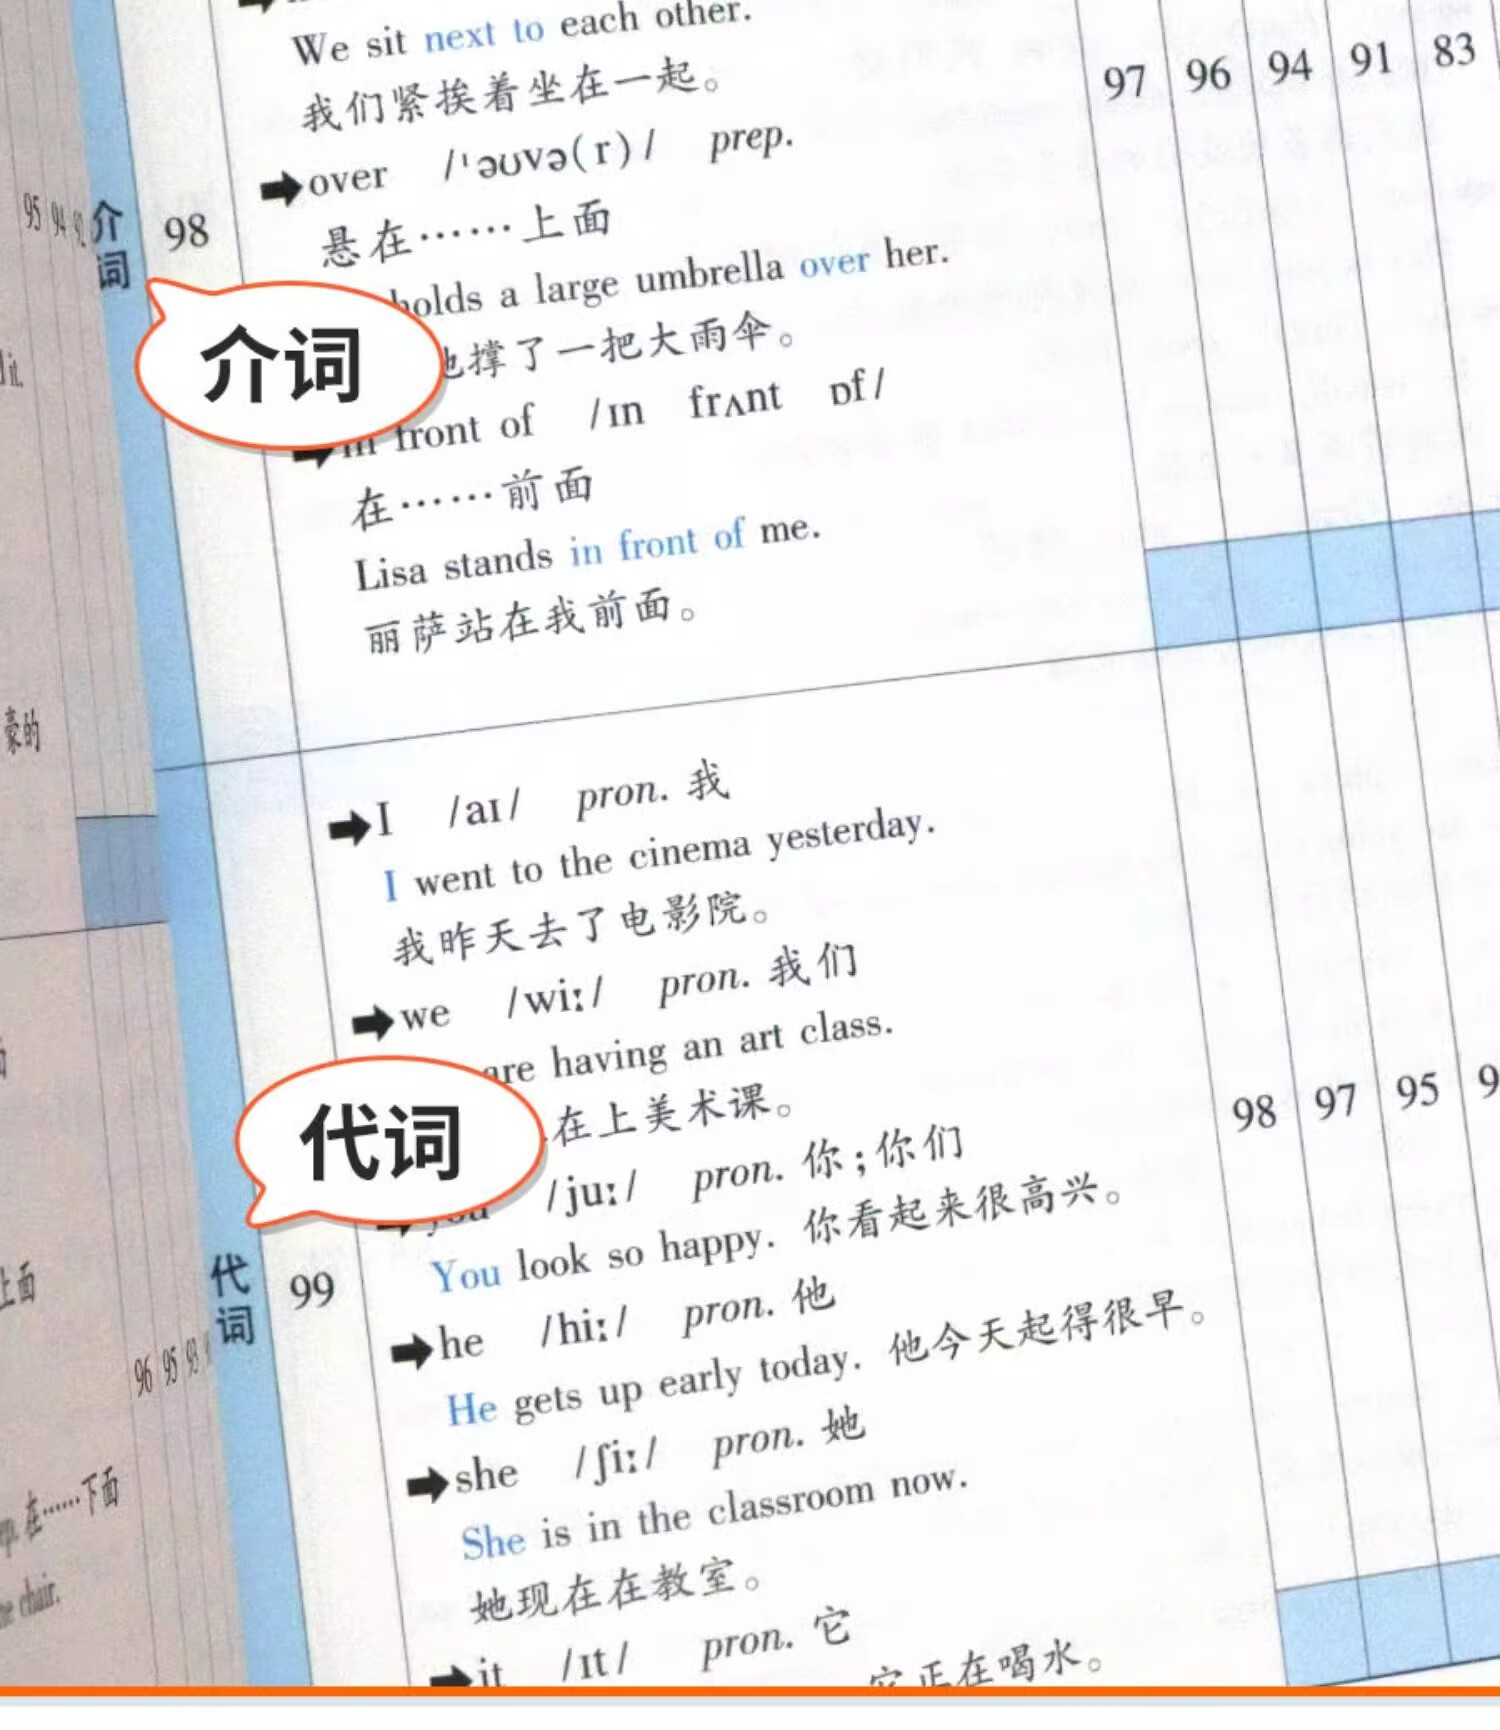 We sit next to each other.
我们紧挨着坐在一起。
over /ˈəʊvə(r)/ prep.
悬在……上面
holds a large umbrella over her.
撑了一把大雨伞。
in front of /ɪn frʌnt ɒf/
在……前面
Lisa stands in front of me.
丽萨站在我前面。
介词
98
介词
97 96 94 91 83
I /aɪ/ pron. 我
I went to the cinema yesterday.
我昨天去了电影院。
we /wiː/ pron. 我们
are having an art class.
在上美术课。
you /juː/ pron. 你；你们
You look so happy. 你看起来很高兴。
he /hiː/ pron. 他
He gets up early today. 他今天起得很早。
she /ʃiː/ pron. 她
She is in the classroom now.
她现在在教室。
it /ɪt/ pron. 它
它正在喝水。
代词
代词
99
98 97 95
95 94 92
it.
豪的
上面
96 95 93
在……下面
chair.